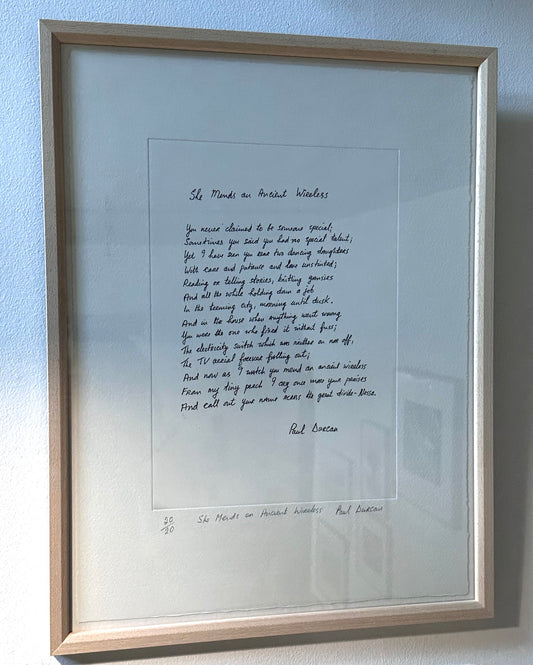 She Mends an Ancient Wireless
You never claimed to be someone special;
Sometimes you said you had no special talent;
Yet I have seen you rear two dancing daughters
With care and patience and love unstinted;
Reading or telling stories, knitting gansies
And all the while holding down a job
In the teeming city, morning until dusk.
And in the house when anything went wrong
You were the one who fixed it without fuss;
The electricity switch which was neither on nor off,
The TV aerial forever falling out;
And now as I watch you mend an ancient wireless
From my tiny perch I cry once more your praises
And call out your name across the great divide-Nessa.
Paul Durcan
20/30 She Mends an Ancient Wireless Paul Durcan